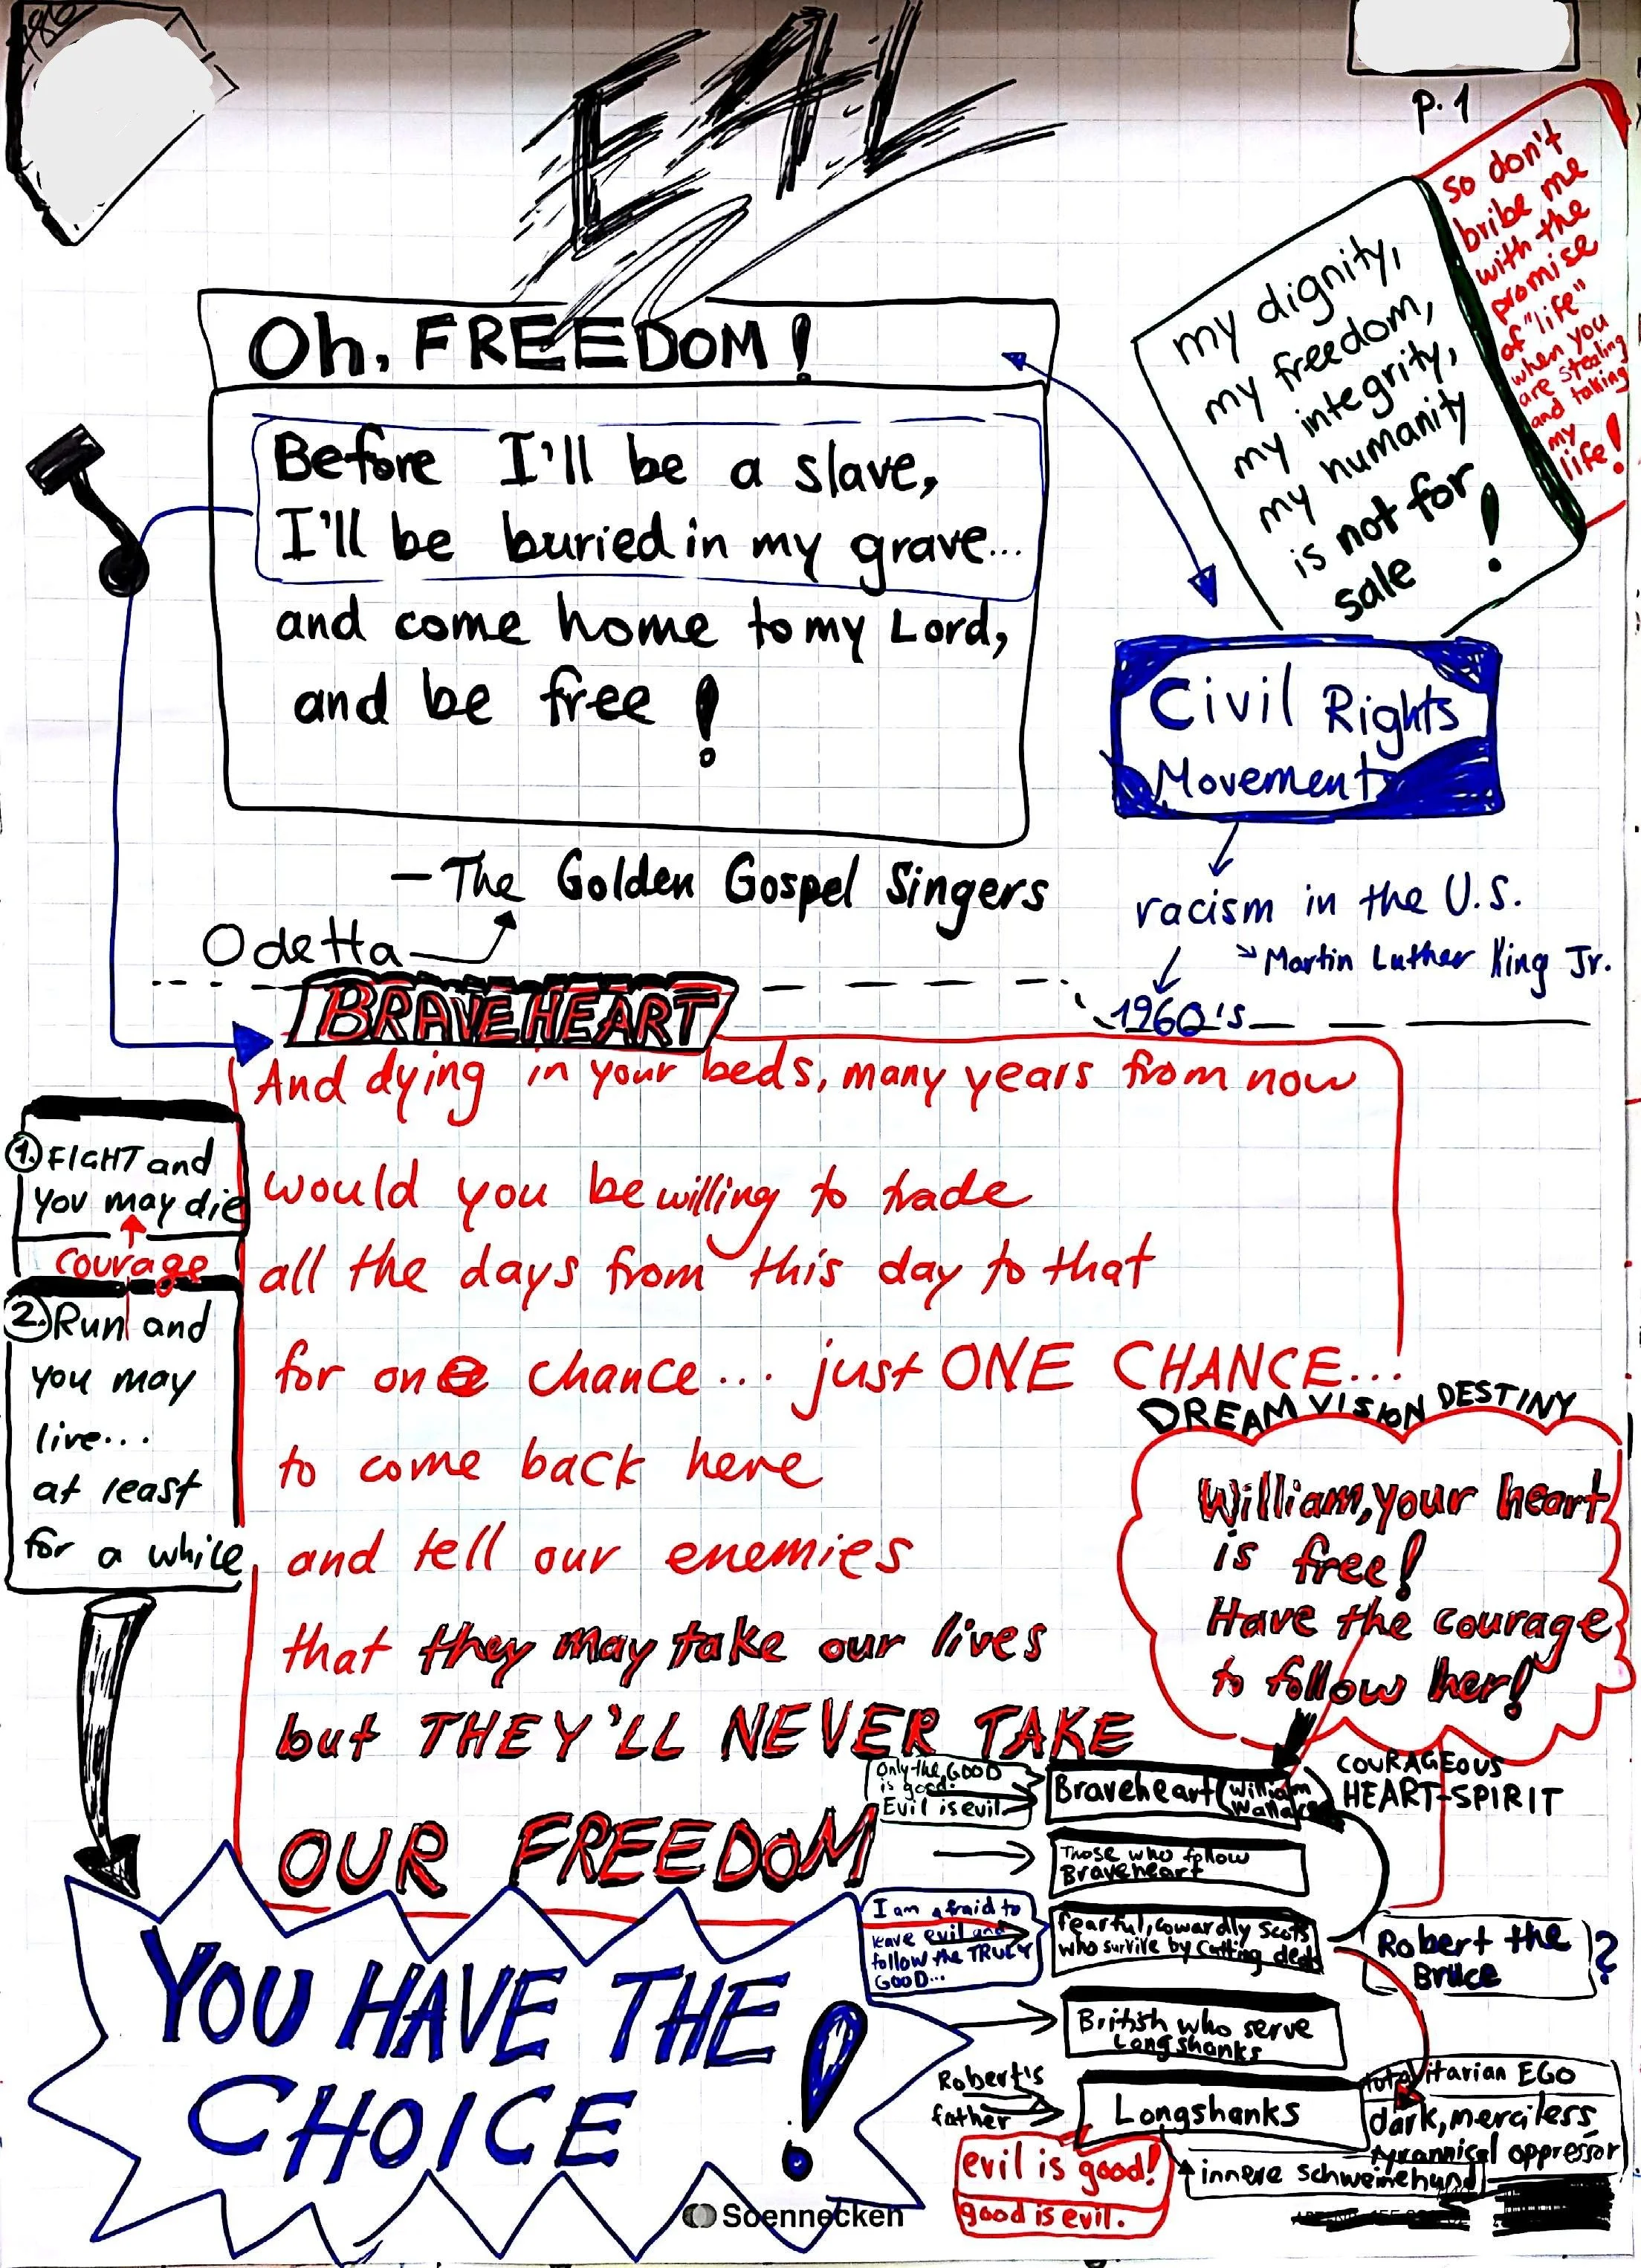 E4L
p. 1
so don't
bribe me
with the
promise
of "life"
when you
are stealing
and taking
my
life!
my dignity,
my freedom,
my integrity,
my humanity
is not for
sale !
Oh, FREEDOM!
Before I'll be a slave,
I'll be buried in my grave...
and come home to my Lord,
and be free !
Civil Rights
Movement
– The Golden Gospel Singers
Odetta
racism in the U.S.
Martin Luther King Jr.
1960's
BRAVEHEART
And dying in your beds, many years from now
would you be willing to trade
all the days from this day to that
for one chance... just ONE CHANCE...
to come back here
and tell our enemies
that they may take our lives
but THEY'LL NEVER TAKE
OUR FREEDOM
1. FIGHT and
you may die
courage
2. Run and
you may
live...
at least
for a while
DREAM VISION DESTINY
William, your heart
is free!
Have the courage
to follow her!
Only the GOOD
is good!
Evil is evil.
Braveheart (William
Wallace)
COURAGEOUS
HEART-SPIRIT
Those who follow
Braveheart
I am afraid to
leave evil and
follow the TRULY
GOOD...
fearful, cowardly Scots
who survive by cutting deals
Robert the
Bruce
?
British who serve
Longshanks
Robert's
father
Longshanks
totalitarian EGO
dark, merciless
tyrannical oppressor
innere Schweinehund
evil is good!
good is evil.
YOU HAVE THE
CHOICE !
Soennecken